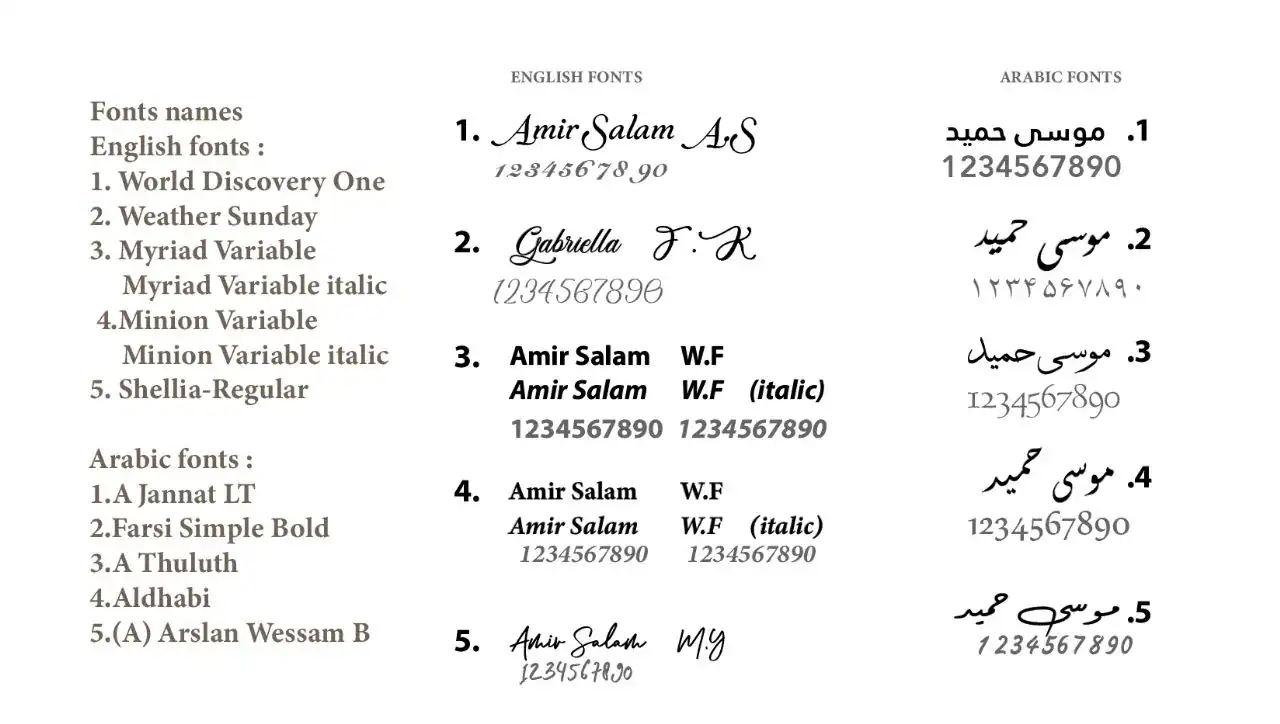 Fonts names
English fonts :
1. World Discovery One
2. Weather Sunday
3. Myriad Variable
Myriad Variable italic
4.Minion Variable
Minion Variable italic
5. Shellia-Regular
Arabic fonts :
1.A Jannat LT
2.Farsi Simple Bold
3.A Thuluth
4.Aldhabi
5.(A) Arslan Wessam B
ENGLISH FONTS
1. Amir Salam A.S
1234567890
2. Gabriella F.K
1234567890
3. Amir Salam W.F
Amir Salam W.F (italic)
1234567890 1234567890
4. Amir Salam W.F
Amir Salam W.F (italic)
1234567890 1234567890
5. Amir Salam M.Y
1234567890
ARABIC FONTS
1. موسى حميد
1234567890
2. موسى حميد
۱۲۳۴۵۶۷۸۹۰
3. موسى حميد
1234567890
4. موسى حميد
1234567890
5. موسى حميد
1234567890